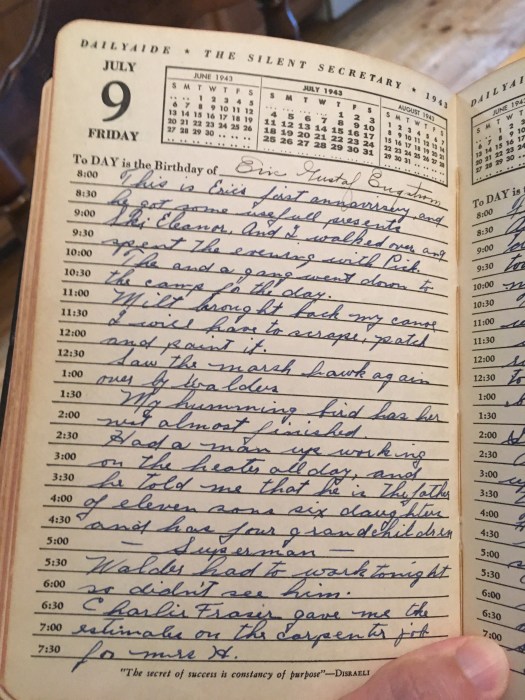 DAILYAIDE ★ THE SILENT SECRETARY ★ 1943
JULY
9
FRIDAY
JUNE 1943
S M T W T F S
1 2 3 4 5
6 7 8 9 10 11 12
13 14 15 16 17 18 19
20 21 22 23 24 25 26
27 28 29 30
JULY 1943
S M T W T F S
1 2 3
4 5 6 7 8 9 10
11 12 13 14 15 16 17
18 19 20 21 22 23 24
25 26 27 28 29 30 31
AUGUST 1943
S M T W T F S
1 2 3 4 5 6 7
8 9 10 11 12 13 14
15 16 17 18 19 20 21
22 23 24 25 26 27 28
29 30 31
To DAY is the Birthday of Eric Gustaf Engstrom
8:00 This is Eric's first anniversry and
8:30 he got some usefull presents
9:00 Ski, Eleanor, And I walked over and
9:30 spent the evening with Pick
10:00 He and a gang went down to
10:30 the camp fo the day.
11:00 Milt brought back my canoe
11:30 I will have to scrape, patch
12:00 and paint it.
12:30 Saw the marsh hawk again
1:00 over by Walders
1:30 My humming bird has her
2:00 nest almost finished.
2:30 Had a man up working
3:00 on the heater all day, and
3:30 he told me that he is the father
4:00 of eleven sons six daughters
4:30 and has four grandchildren
5:00 — Superman —
5:30 Walder had to work tonight
6:00 so didn't see him.
6:30 Charlie Fraser gave me the
7:00 estimates on the carpenter job
7:30 for mrs H.
"The secret of success is constancy of purpose"—DISRAELI
DAILYAI
JUNE
To DAY is
8:00
8:30
9:00
9:30
10:00
10:30
11:00
11:30
12:00
12:30
1:00
1:30
2:00
2:30
3:00
3:30
4:00
4:30
5:00
5:30
6:00
6:30
7:00